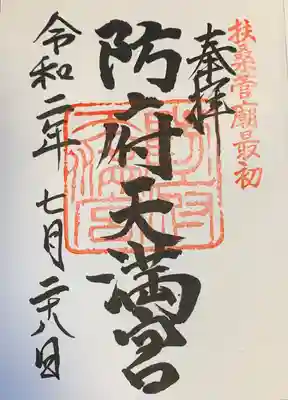 扶桑菅廟最初
奉拝
防府天満宮
令和二年七月二十八日